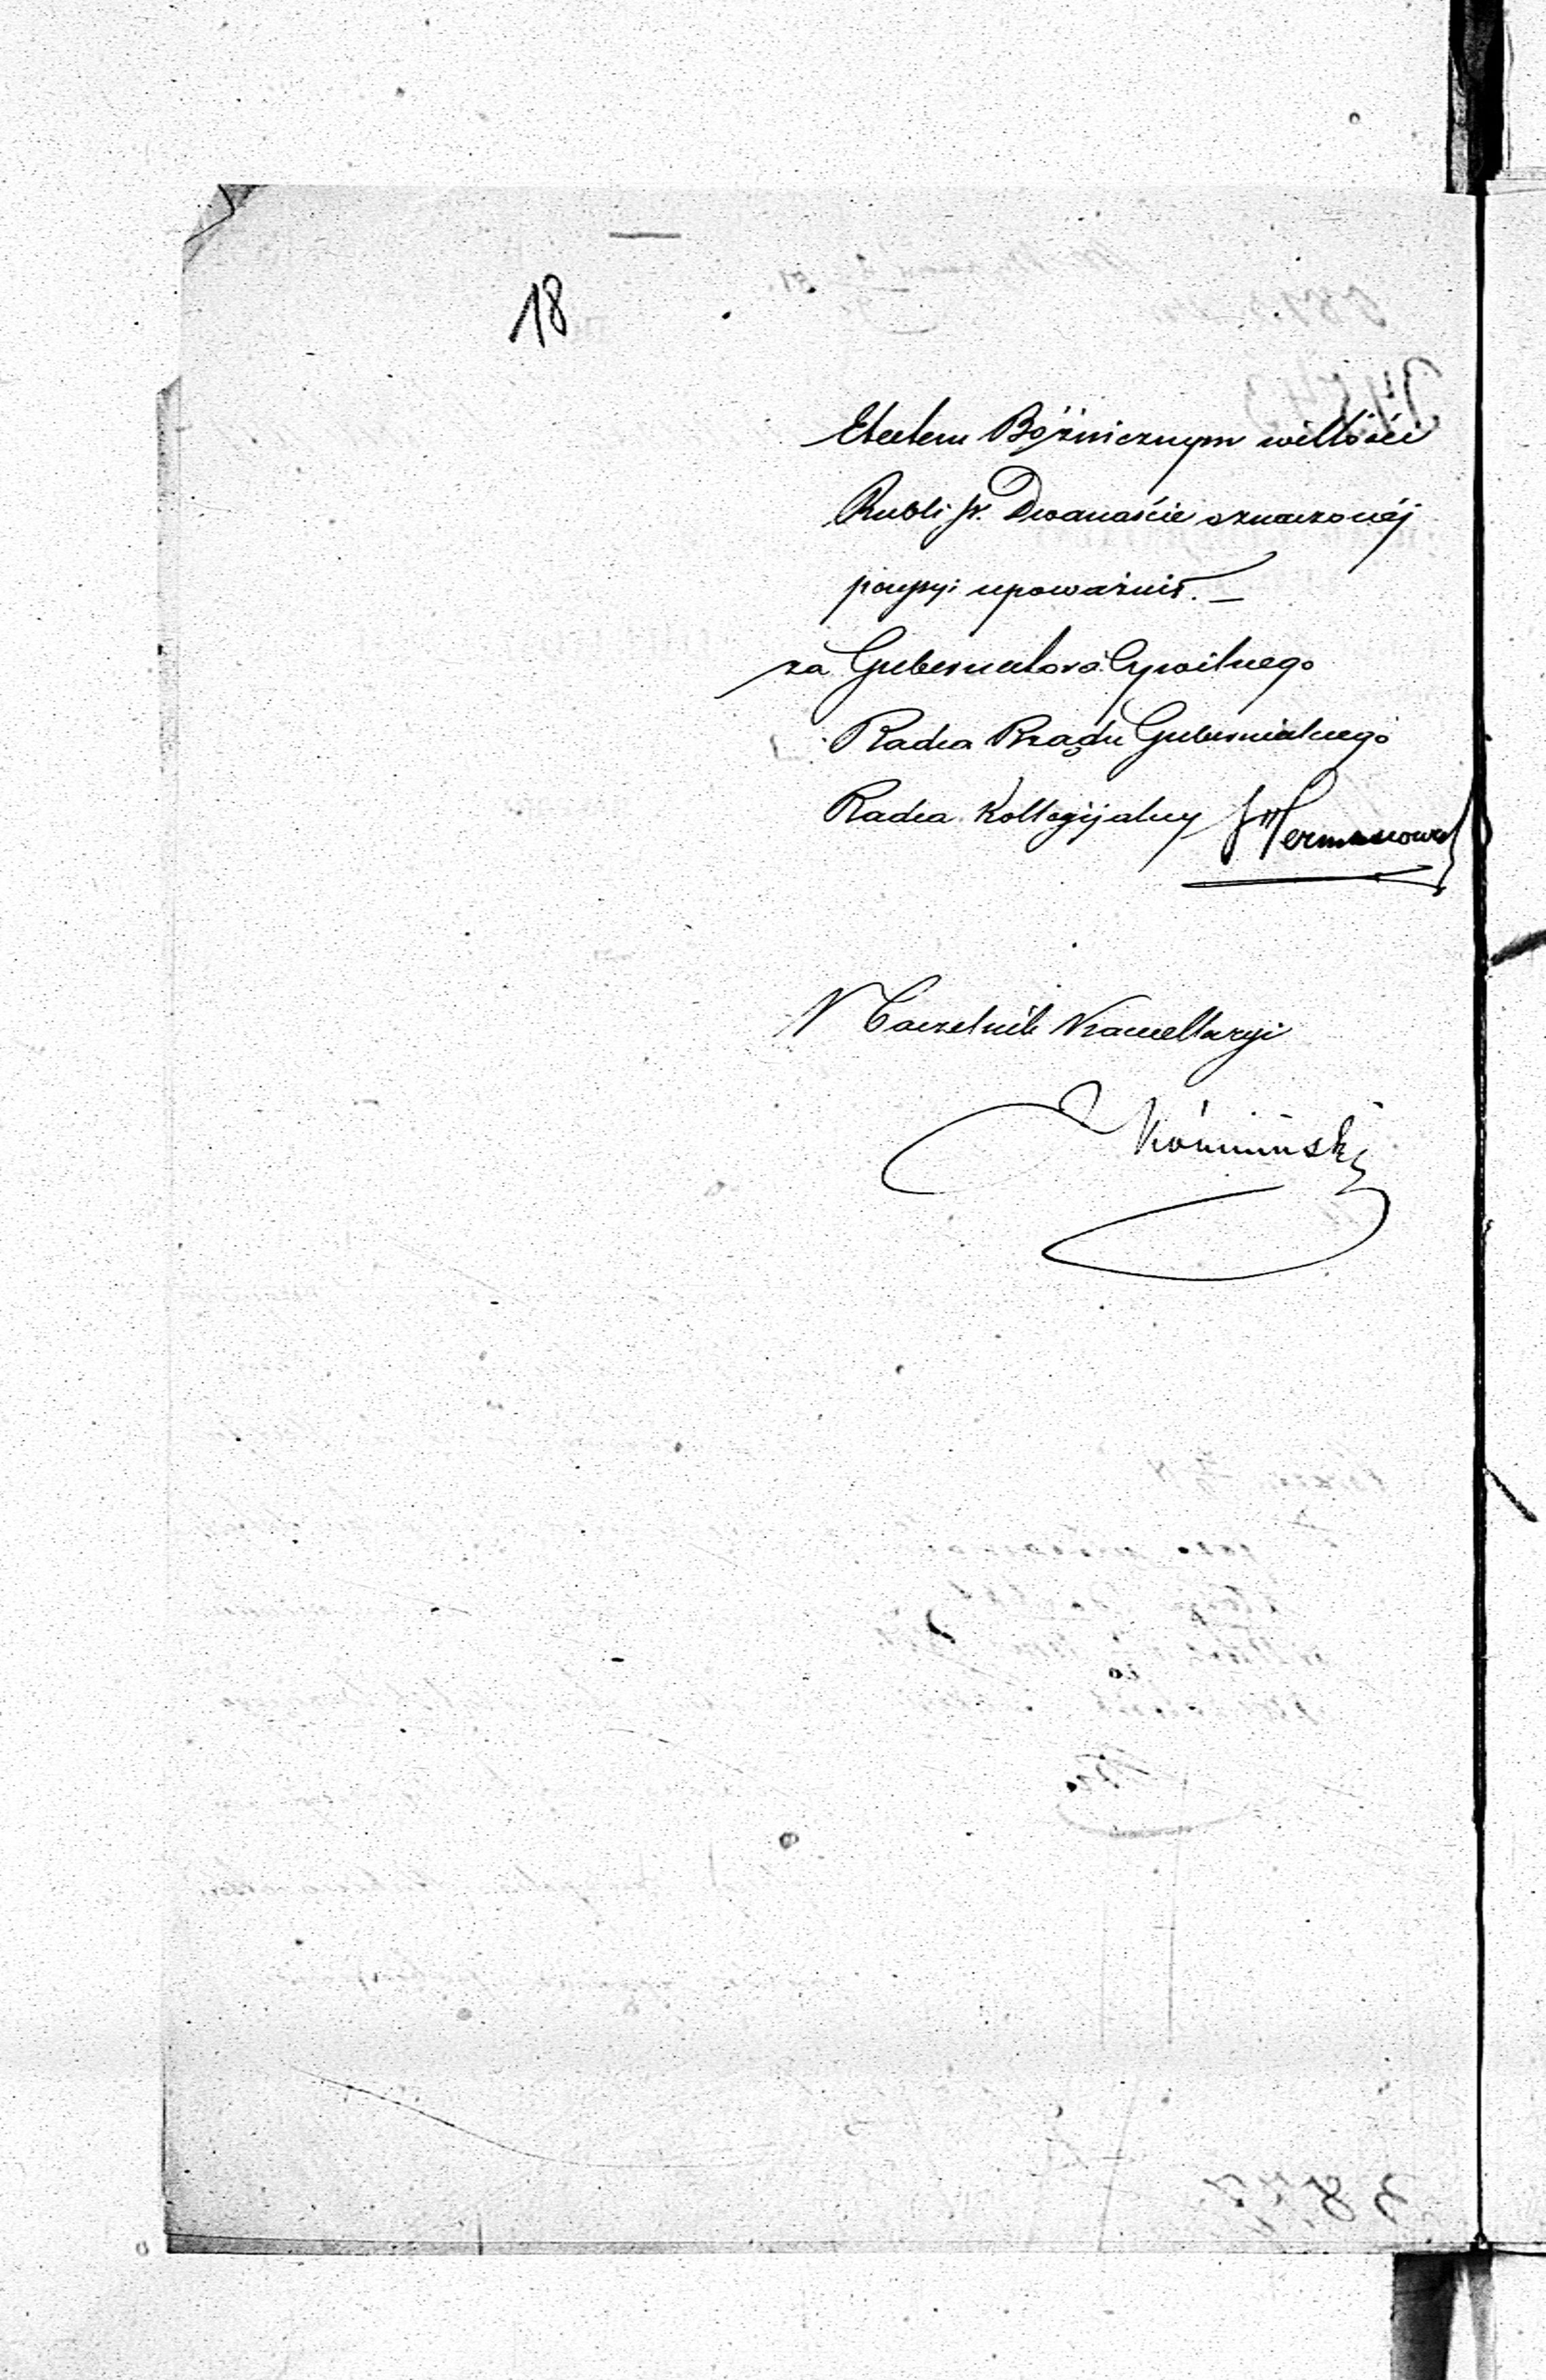 18
Etatem Bóżnicznym w illości
Rubli sr. Dwanaście oznaczonéj
pensyi upoważnił. —
za Gubernatora Cywilnego
Radca Rządu Gubernialnego
Radca Kollegijalny
Naczelnik Kancellaryi